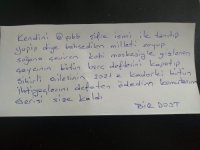 Kendini @pbb şifre ismi ile tanıtıp
yapip diye bahsedilen milleti soyup
soğana çeviren kedi maskesiyle gizlenen
şaycının bütün borç defterini kapatıp
ailesinin 2021'e kadarki bütün
ihtiyaçlarını defaten ödedim
gerisi size kaldı
BİR DOST